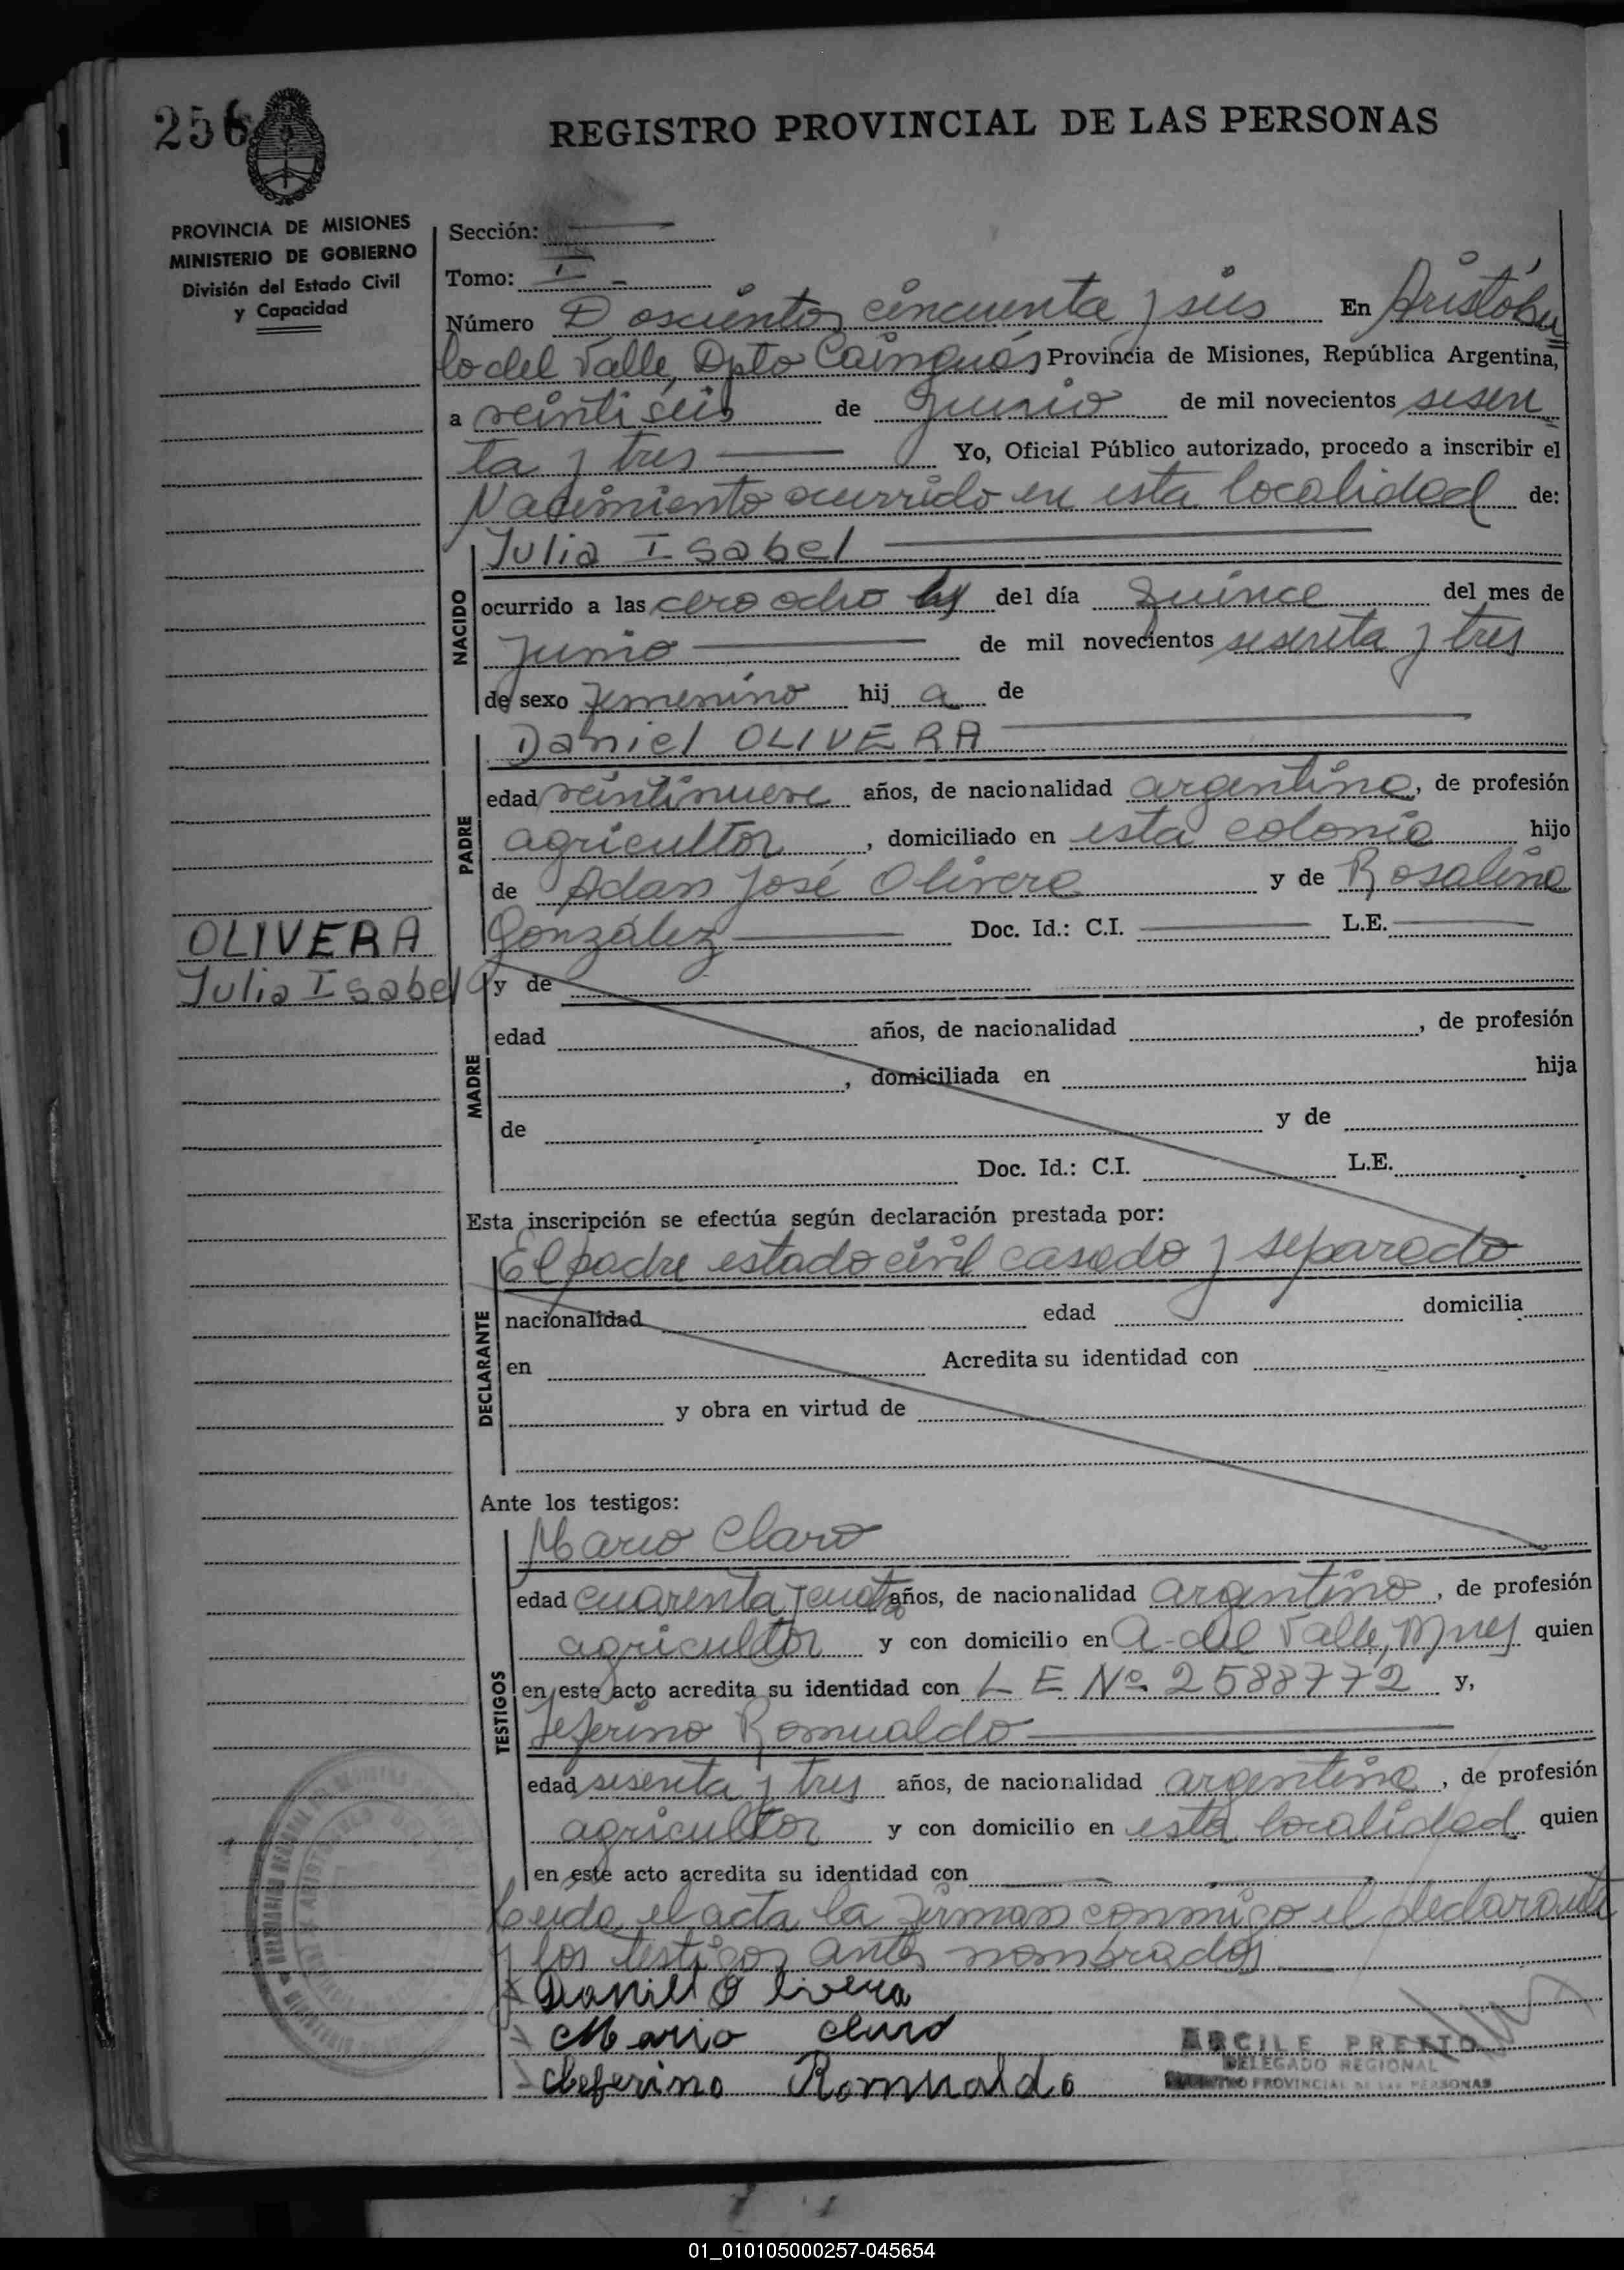 256
REGISTRO PROVINCIAL DE LAS PERSONAS
PROVINCIA DE MISIONES
MINISTERIO DE GOBIERNO
División del Estado Civil
y Capacidad
Sección:
Tomo: I
Número Doscientos cincuenta y seis En Aristóbu
lo del Valle, Dpto Cainguás Provincia de Misiones, República Argentina,
a veintiseis de Junio de mil novecientos sesen
ta y tres Yo, Oficial Público autorizado, procedo a inscribir el
Nacimiento ocurrido en esta localidad de:
NACIDO
Julia Isabel
ocurrido a las cero ocho hs del día Quince del mes de
Junio de mil novecientos sesenta y tres
de sexo femenino hij a de
PADRE
Daniel OLIVERA
edad veintinueve años, de nacionalidad argentino, de profesión
agricultor, domiciliado en esta colonia hijo
de Adan José Olivera y de Rosalina
González Doc. Id.: C.I. L.E.
OLIVERA
Julia Isabel
MADRE
y de
edad años, de nacionalidad , de profesión
, domiciliada en hija
de y de
Doc. Id.: C.I. L.E.
Esta inscripción se efectúa según declaración prestada por:
DECLARANTE
El padre estado civil casado y separado
nacionalidad edad domicilia
en Acredita su identidad con
y obra en virtud de
Ante los testigos:
TESTIGOS
Mario Claro
edad cuarenta y cuatro años, de nacionalidad argentino, de profesión
agricultor y con domicilio en A. del Valle, Mnes quien
en este acto acredita su identidad con L E Nº 2588772 y,
Seferino Romualdo
edad sesenta y tres años, de nacionalidad argentino, de profesión
agricultor y con domicilio en esta localidad quien
en este acto acredita su identidad con
Leida el acta la firman conmigo el declarante
y los testigos antes nombrados
Daniel Olivera
Mario Claro
Ceferino Romualdo
ARCILE PRETTO
DELEGADO REGIONAL
REGISTRO PROVINCIAL DE LAS PERSONAS
01_010105000257-045654